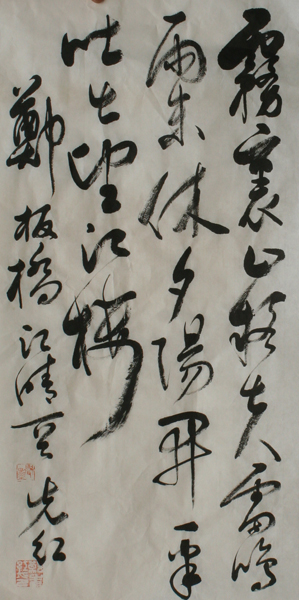 霧裹山疑失雷鳴
雨未休夕陽開一半
吐出望江樓
鄭板橋江晴